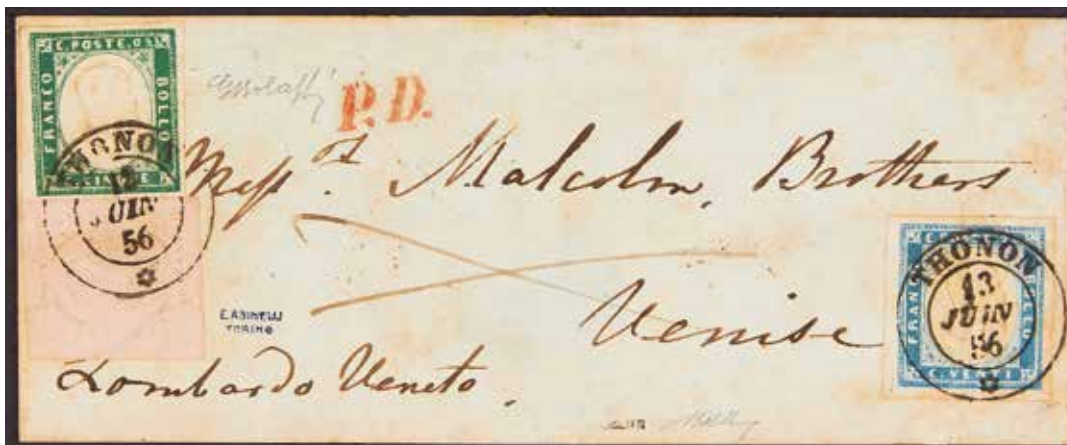 C. POSTE 05
FRANCO
BOLLO
THONON
13
JUIN
56
P.D.
Mess.rs Malcolm, Brothers
Venise
Lombardo Veneto.
E. ASINELLI
TORINO
FRAN
C. VENTI
THONON
13
JUIN
56